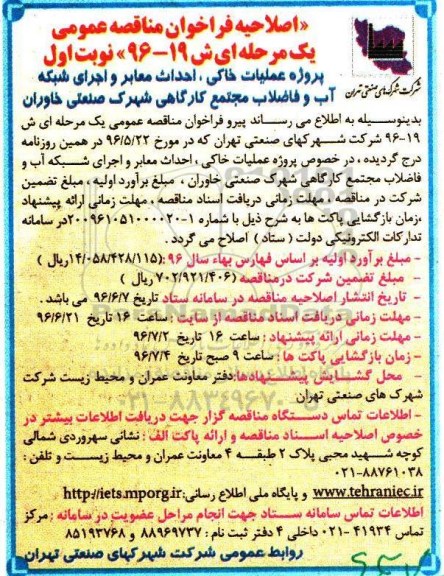 «اصلاحیه فراخوان مناقصه عمومی
یک مرحله ای ش ۱۹-۹۶» نوبت اول
شرکت شهرکهای صنعتی تهران
پروژه عملیات خاکی ، احداث معابر و اجرای شبکه
آب و فاضلاب مجتمع کارگاهی شهرک صنعتی خاوران
بدینوسیله به اطلاع می رساند پیرو فراخوان مناقصه عمومی یک مرحله ای ش
۱۹-۹۶ شرکت شهرکهای صنعتی تهران که در مورخ ۹۶/۵/۲۲ در همین روزنامه
درج گردیده ، در خصوص پروژه عملیات خاکی ، احداث معابر و اجرای شبکه آب و
فاضلاب مجتمع کارگاهی شهرک صنعتی خاوران ، مبلغ برآورد اولیه ، مبلغ تضمین
شرکت در مناقصه ، مهلت زمانی دریافت اسناد مناقصه ، مهلت زمانی ارائه پیشنهاد
،زمان بازگشایی پاکت ها به شرح ذیل با شماره ۲۰۰۹۶۱۰۵۱۰۰۰۰۲۰-۱ در سامانه
تدارکات الکترونیکی دولت ( ستاد ) اصلاح می گردد .
- مبلغ برآورد اولیه بر اساس فهارس بهاء سال ۹۶ :(۱۴/۰۵۸/۴۲۸/۱۱۵ریال )
- مبلغ تضمین شرکت در مناقصه (۷۰۲/۹۲۱/۴۰۶ ریال )
- تاریخ انتشار اصلاحیه مناقصه در سامانه ستاد تاریخ ۹۶/۶/۷ می باشد .
- مهلت زمانی دریافت اسناد مناقصه از سایت : ساعت ۱۶ تاریخ ۹۶/۶/۲۱
- مهلت زمانی ارائه پیشنهاد : ساعت ۱۶ تاریخ ۹۶/۷/۲
- زمان بازگشایی پاکت ها : ساعت ۹ صبح تاریخ ۹۶/۷/۴
- محل گشایش پیشنهادها:دفتر معاونت عمران و محیط زیست شرکت
شهرک های صنعتی تهران
- اطلاعات تماس دستگاه مناقصه گزار جهت دریافت اطلاعات بیشتر در
خصوص اصلاحیه اسناد مناقصه و ارائه پاکت الف : نشانی سهروردی شمالی
کوچه شهید محبی پلاک ۲ طبقه ۴ معاونت عمران و محیط زیست و تلفن :
۰۲۱-۸۸۷۶۱۰۳۸
www.tehraniec.ir و پایگاه ملی اطلاع رسانی:http://iets.mporg.ir
اطلاعات تماس سامانه ستاد جهت انجام مراحل عضویت در سامانه : مرکز
تماس ۴۱۹۳۴-۰۲۱ داخلی ۴ دفتر ثبت نام : ۸۸۹۶۹۷۳۷ و ۸۵۱۹۳۷۶۸
روابط عمومی شرکت شهرکهای صنعتی تهران